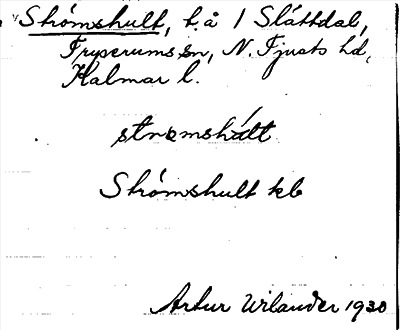 Strömshult, t. å / Slättdal,
Fryserums sn, N. Tjusts hd,
Kalmar l.
strömshúlt
Strömshult kb
Artur Wilander 1930